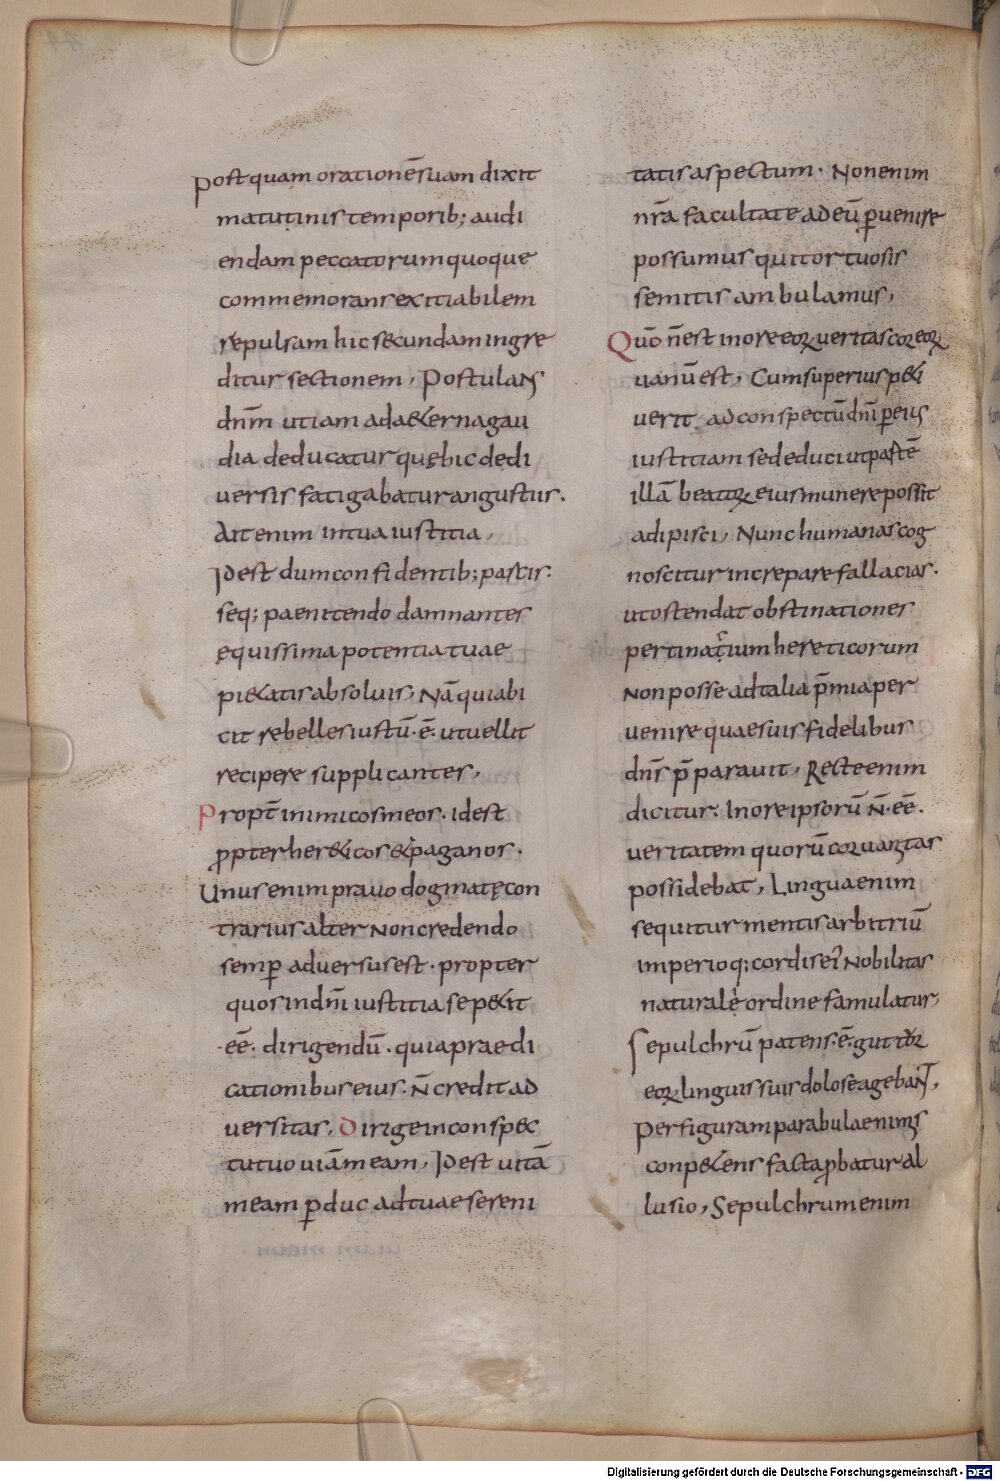 Postquam orationē suam dixit
matutinis temporib; audi
endam peccatorum quoque
commemorans exitiabilem
repulsam hic secundam ingre
ditur sectionem, Postulans
dnm̄ ut iam ad aeterna gau
dia deducatur quę hic de di
versis fatigabatur angustiis.
Ait enim in tua iustitia,
Idest dum confidentib; parcis.
seq; paenitendo damnantes
ęquissima potentia tuae
pietatis absoluis, Nā qui abi
cit rebelles iustū·ē· ut uellit
recipere supplicantes,
Propt̄ inimicos meos. idest
ꝓpter heręticos et paganos.
Unus enim prauo dogmatę con
trarius alter non credendo
semꝑ adversus est. propter
quos in dnī iustitia se petit
·eē· dirigendū. quia praedi
cationibus eius. n̄ credit ad
versitas. Dirige in conspec
tu tuo uiā meam, Idest uitā
meam ꝑduc ad tuae sereni
tatis aspectum. Non enim
nr̄a facultate ad eū ꝑuenire
possumus qui tortuosis
semitis ambulamus,
Quō n̄ est in ore eoꝝ veritas cor eoꝝ
uanū est, Cum superius peti
verit ad conspectū dnī ꝑ eius
iustitiam se deduci ut pastē
illā beatoꝝ eius munere possit
adipisci, Nunc humanas cog
noscitur increpare fallacias.
ut ostendat obstinationes
pertinatium hereticorum
non posse ad talia p̄mia per
venire quae suis fidelibus
dns̄ p̄parauit, Recte enim
dicitur. In ore ipsorū n̄·eē.
vēritatem quorū cor vanitas
possidebat, Lingua enim
sequitur mentis arbitriū
imperioq; cordis ei' nobilitas
naturalē ordine famulatur,
Sepulchrū patens·ē·guttur
eoꝝ linguis suis dolose agebant,
Per figuram parabulae nimis
conpetens facta ꝓbatur al
lusio, Sepulchrum enim
Digitalisierung gefördert durch die Deutsche Forschungsgemeinschaft - DFG